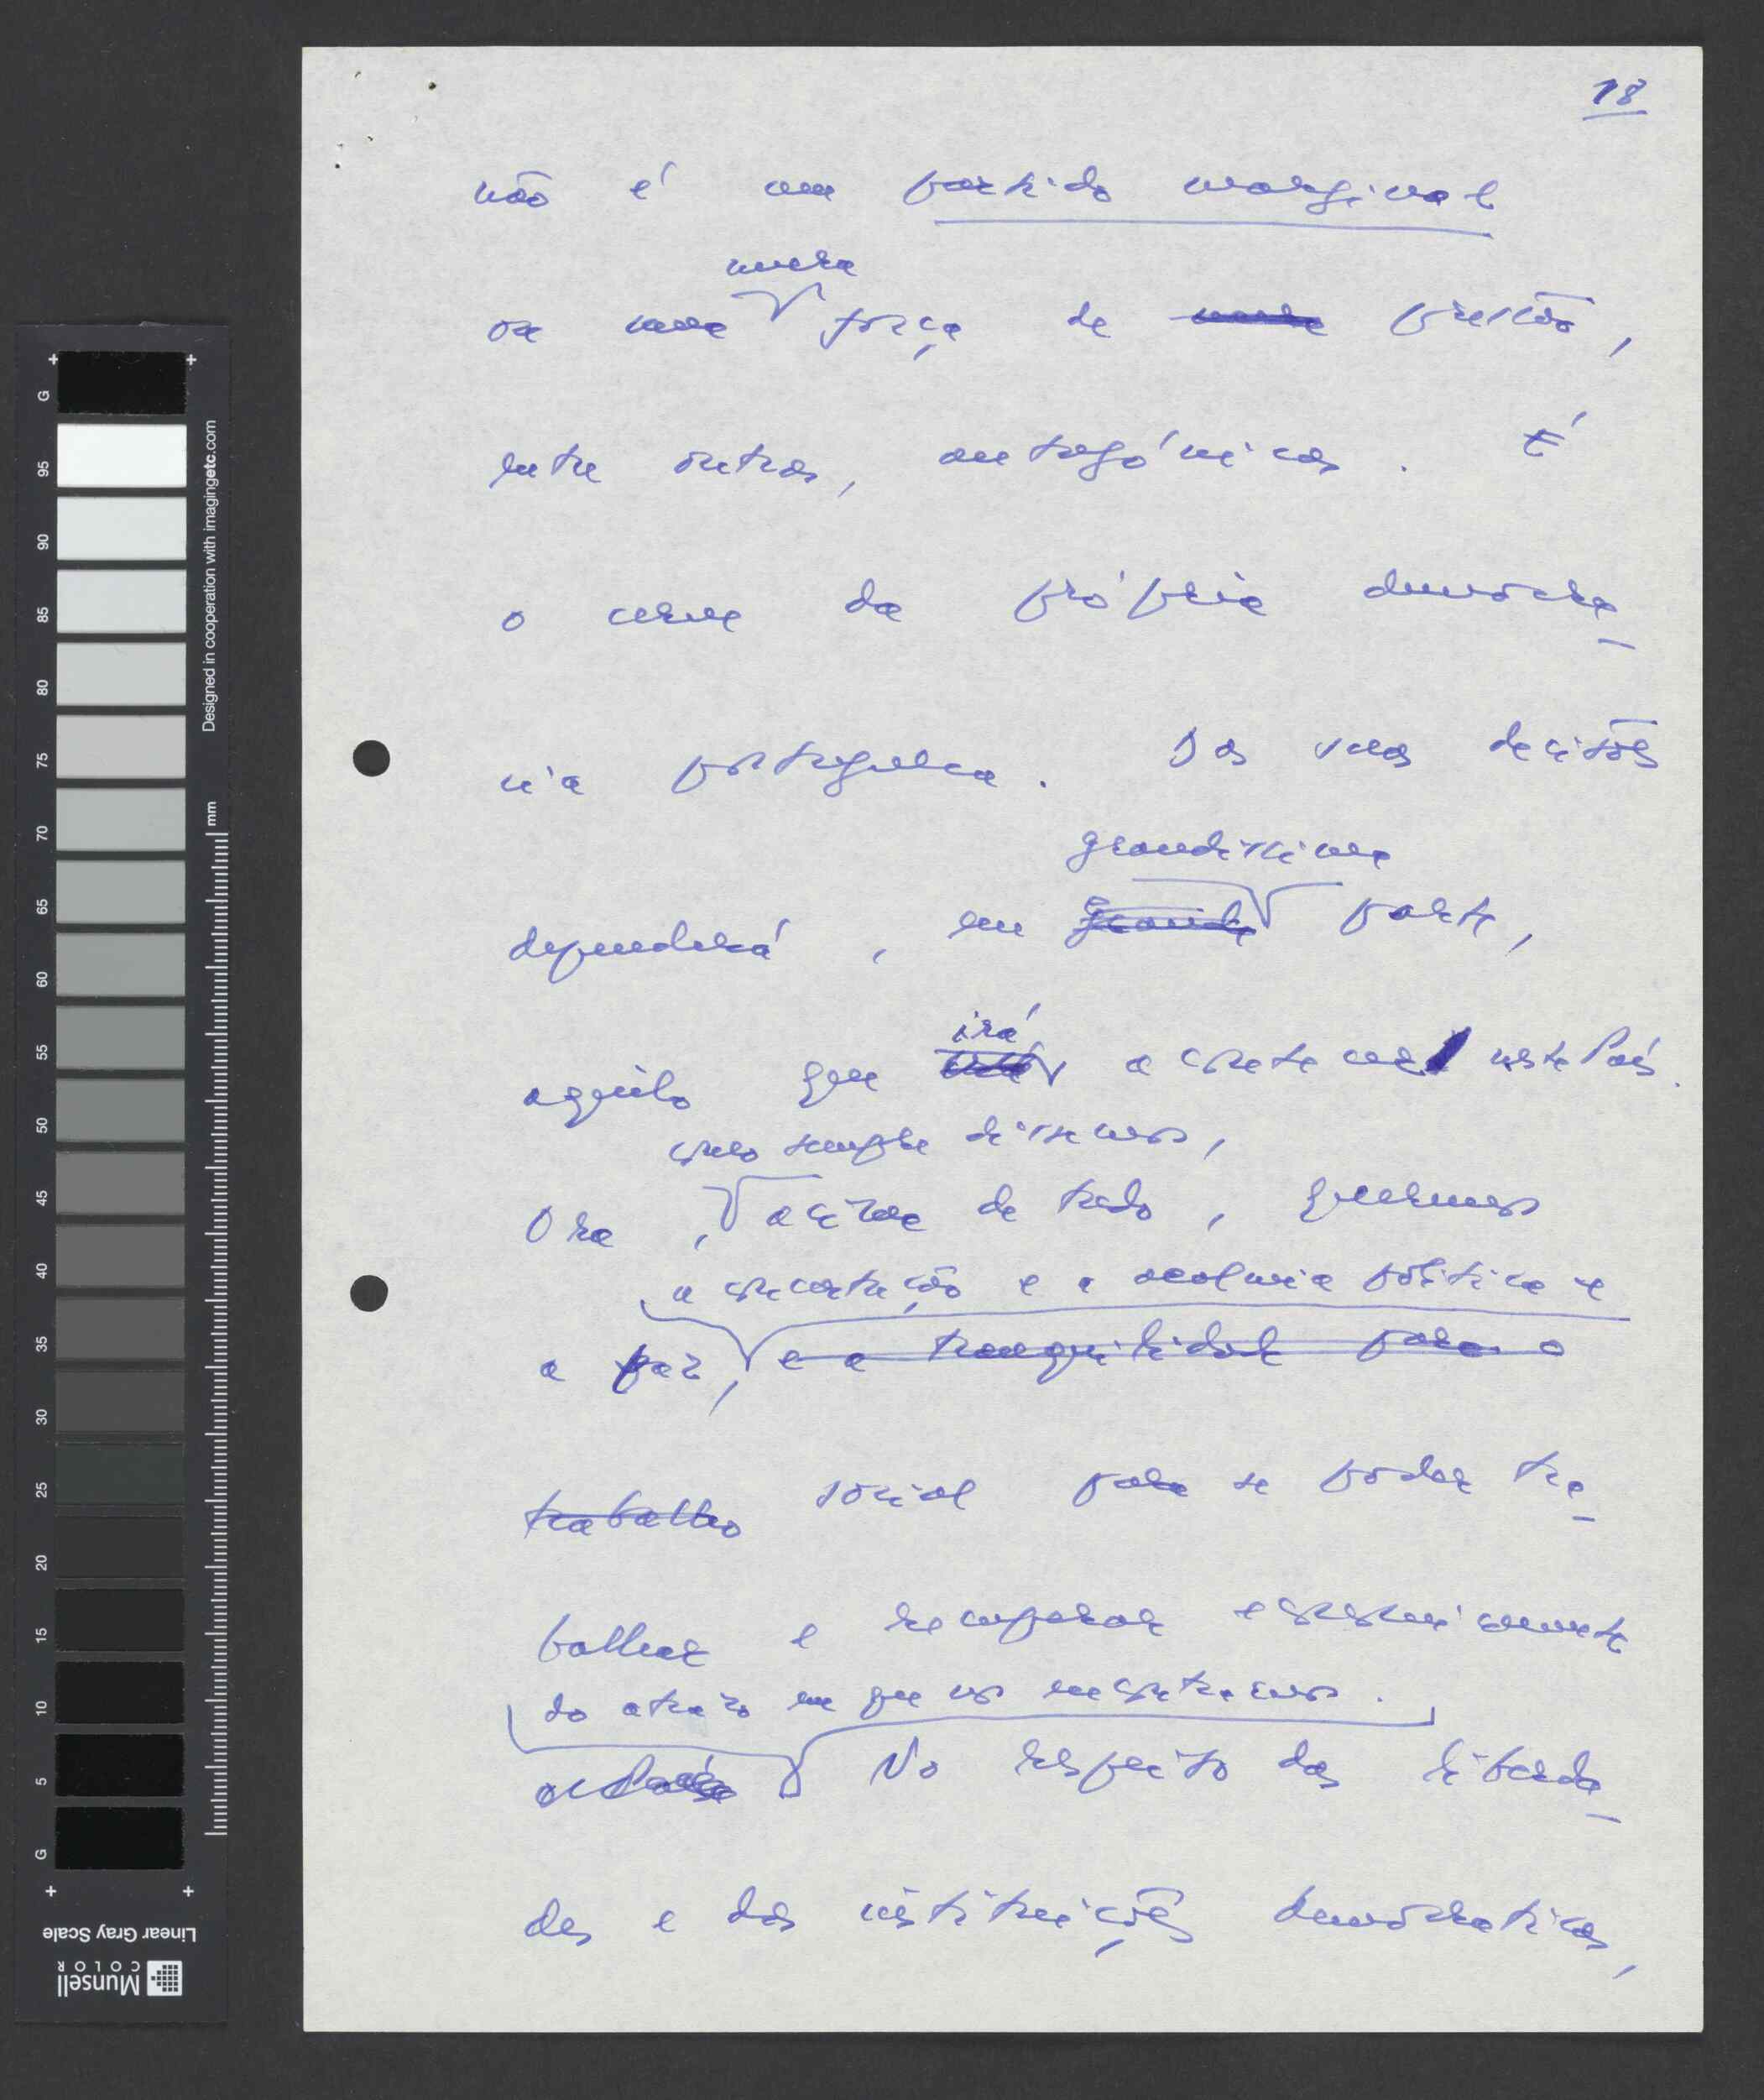 18
não é um partido marginal
mera
ou uma força de pressão,
entre outras, antagónicas. É
o cerne da própria democra-
cia portuguesa. Das suas decisões
grandíssima
dependerá, em grande parte,
irá
aquilo que acontecer neste País.
como sempre dissemos,
Ora, acima de tudo, queremos
a concertação e a acalmia política e
a paz, e a tranquilidade para o
trabalho social para se poder tra-
balhar e recuperar economicamente
do atraso em que nos encontramos.
No respeito das liberda-
des e das instituições democráticas,
G 95 90 85 80 75 70 65 60 55 50 45 40 35 30 25 20 15 10 5 G
Designed in cooperation with imagingetc.com
mm
Linear Gray Scale
Munsell
COLOR